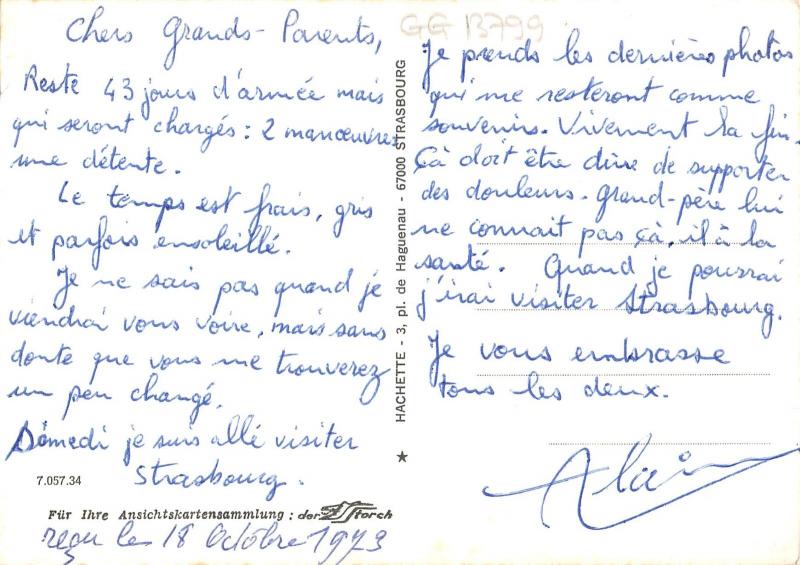 Chers Grands-Parents,
Reste 43 jours d'armée mais
qui seront chargés : 2 manœuvres
une détente.
Le temps est frais, gris
et parfois ensoleillé.
Je ne sais pas quand je
viendrai vous voire, mais sans
doute que vous me trouverez
un peu changé.
Samedi je suis allé visiter
Strasbourg.
7.057.34
Für Ihre Ansichtskartensammlung : der Storch
reçu le 18 Octobre 1973
HACHETTE - 3, pl. de Haguenau - 67000 STRASBOURG
GG 13799
Je prends les dernières photos
qui me resteront comme
souvenirs. Vivement la fin.
Çà doit être dure de supporter
des douleurs. Grand-père lui
ne connait pas çà, il à la
santé. Quand je pourrai
j'irai visiter Strasbourg.
Je vous embrasse
tous les deux.
Alain